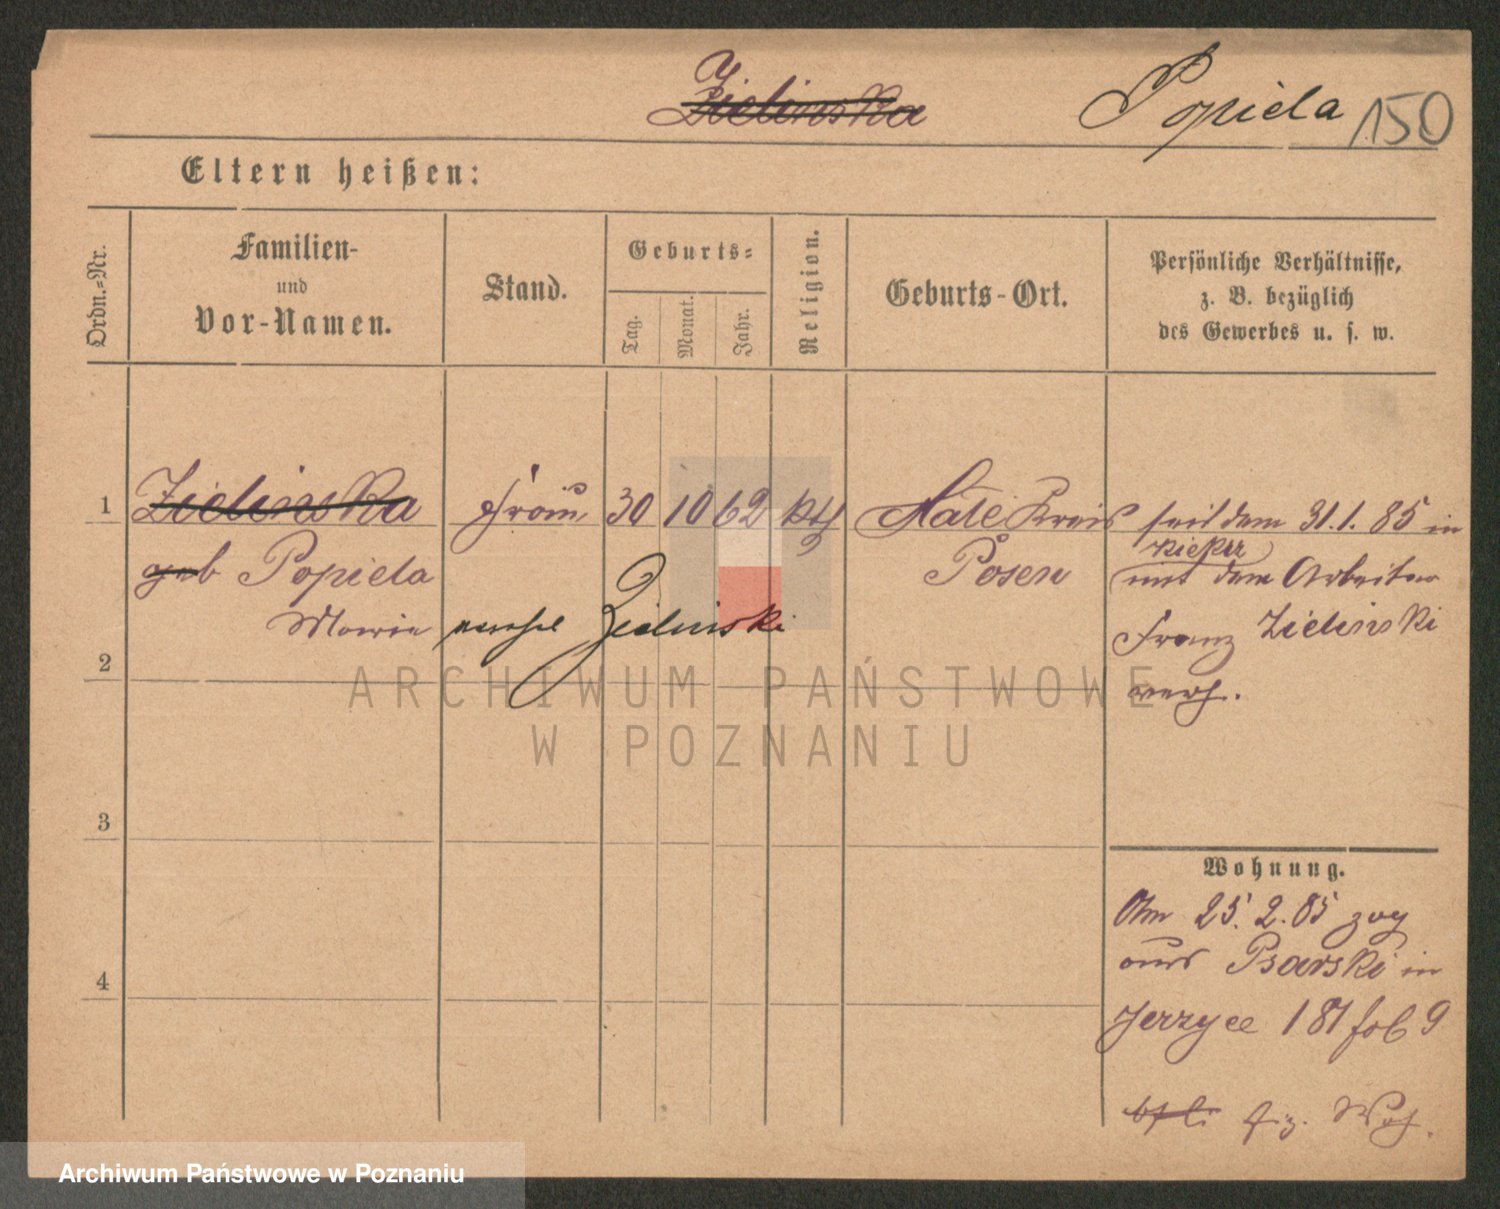 Zielinska Popiela 150
Eltern heißen:
Ordn.-Nr.
Familien-
und
Vor-Namen.
Stand.
Geburts-
Tag.
Monat.
Jahr.
Religion.
Geburts-Ort.
Persönliche Verhältnisse,
z. B. bezüglich
des Gewerbes u. s. w.
1 Zielinska Frau 30 10 62 kth Kreis seit dem 31.1.85 in
kiekrz
geb Popiela Posen mit dem Arbeiter
Maria Zielinski Franz Zielinski
2
verh.
3
4
Wohnung.
Am 25.2.85 zog
aus Psarski in
Jerzyce 181 fol 9
ARCHIWUM PAŃSTWOWE
W POZNANIU
Archiwum Państwowe w Poznaniu